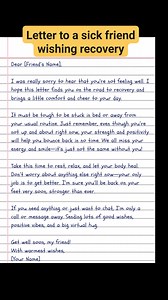 Letter to a sick friend
wishing recovery
Dear [Friend's Name],
I was really sorry to hear that you're not feeling well. I
hope this letter finds you on the road to recovery and
brings a little comfort and cheer to your day.
It must be tough to be stuck in bed or away from
your usual routine. Just remember, even though you're
not up and about right now, your strength and positivity
will help you bounce back in no time. We all miss your
energy and smile—it's just not the same without you!
Take this time to rest, relax, and let your body heal.
Don't worry about anything else right now—your only
job is to get better. I'm sure you'll be back on your
feet very soon, stronger than ever.
If you need anything or just want to chat, I'm only a
call or message away. Sending lots of good wishes,
positive vibes, and a big virtual hug.
Get well soon, my friend!
With warmest wishes,
[Your Name]